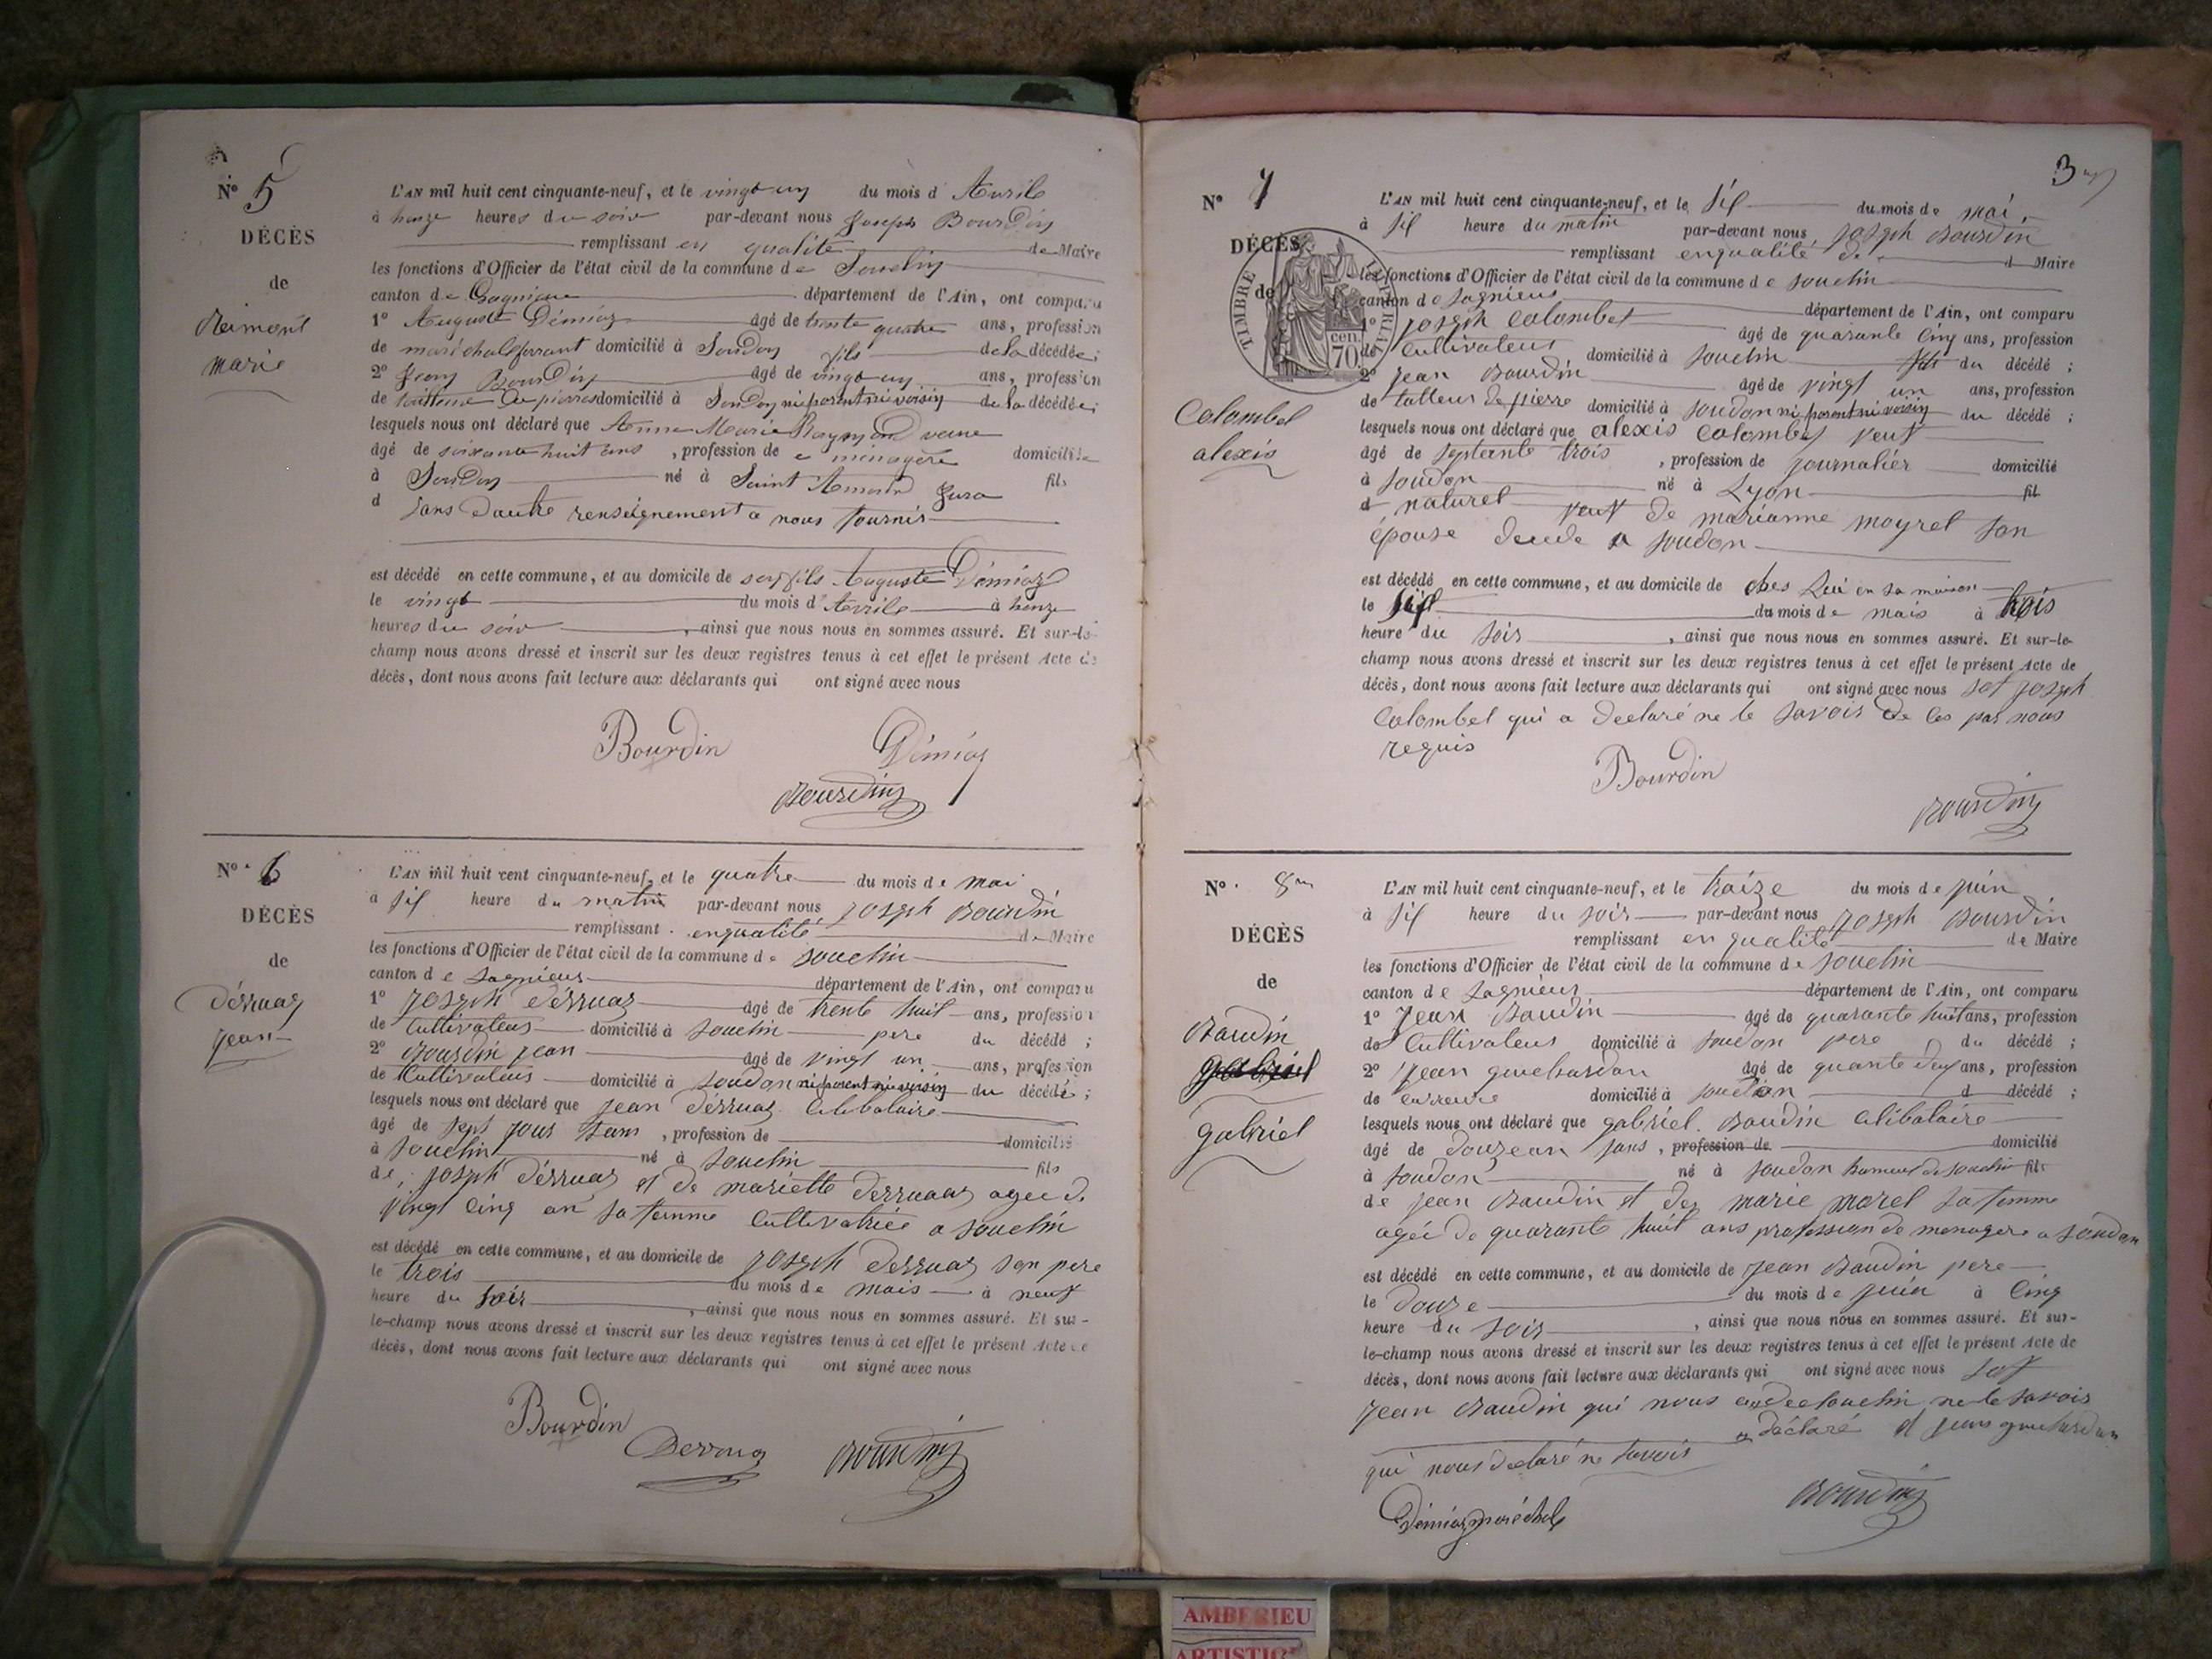 N° 5
DÉCÈS
de
Reimont
marie
L'AN mil huit cent cinquante-neuf, et le vingt un du mois d'Avrile
à honze heures du soir par-devant nous Joseph Bourdin
remplissant en qualité de Maire
les fonctions d'Officier de l'état civil de la commune de Souclin
canton de Lagnieu département de l'Ain, ont comparu
1° Auguste Démiaz âgé de trente quatre ans, profession
de maréchalferrant domicilié à Soudon fils de la décédée;
2° Jean Bourdin âgé de vingt un ans, profession
de tailleur de pierres domicilié à Soudon ni parent ni voisin de la décédée;
lesquels nous ont déclaré que Anne Marie Raymond veuve
âgé de soixante huit ans, profession de menagère domicilié
à Soudon né à Saint Amour Jura fils
d sans dautre renseignement a nous fournir
est décédé en cette commune, et au domicile de son fils Auguste Démiaz
le vingt du mois d'Avrile à honze
heures du soir, ainsi que nous nous en sommes assuré. Et sur-le-
champ nous avons dressé et inscrit sur les deux registres tenus à cet effet le présent Acte de
décès, dont nous avons fait lecture aux déclarants qui ont signé avec nous
Bourdin Démiaz
Bourdin
N° 6
DÉCÈS
de
Dérruaz
jean
L'AN mil huit cent cinquante-neuf, et le quatre du mois de mai
à sif heure du matin par-devant nous joseph Bourdin
remplissant enqualité de Maire
les fonctions d'Officier de l'état civil de la commune de souclin
canton de Lagnieus département de l'Ain, ont comparu
1° joseph dérruaz âgé de trente huit ans, profession
de Cultivateus domicilié à souclin pere du décédé;
2° Bourdin jean âgé de vingt un ans, profession
de Cultivateus domicilié à soudon ni parent ni voisin du décédé;
lesquels nous ont déclaré que jean dérruaz Celibataire
âgé de sept jous, profession de domicilié
à souclin né à souclin fils
de joseph dérruaz et de mariette derruaz agée de
vingt cinq an sa femme Cultivatrice a souclin
est décédé en cette commune, et au domicile de joseph derruaz son pere
le trois du mois de mais à neuf
heure du soir, ainsi que nous nous en sommes assuré. Et sur-
le-champ nous avons dressé et inscrit sur les deux registres tenus à cet effet le présent Acte de
décès, dont nous avons fait lecture aux déclarants qui ont signé avec nous
Bourdin
Derruaz Bourdin
3
N° 7
DÉCÈS
de
TIMBRE IMPERIAL
cen. 70
Colombet
alexis
L'AN mil huit cent cinquante-neuf, et le sif du mois de mai
à sif heure du matin par-devant nous joseph Bourdin
remplissant enqualité de Maire
les fonctions d'Officier de l'état civil de la commune de souclin
canton de Lagnieus département de l'Ain, ont comparu
1° joseph Colombet âgé de quarante cinq ans, profession
de Cultivateus domicilié à souclin fils du décédé;
2° jean Bourdin âgé de vingt un ans, profession
de talleur de pierre domicilié à soudon ni parent ni voisin du décédé;
lesquels nous ont déclaré que alexis Colombet veuf
âgé de septente trois, profession de journalier domicilié
à soudon né à Lyon fil
d naturel veuf de marianne moyret son
épouse a soudon
est décédé en cette commune, et au domicile de ches Lui en sa maison
le sif du mois de mais à trois
heure du soir, ainsi que nous nous en sommes assuré. Et sur-le-
champ nous avons dressé et inscrit sur les deux registres tenus à cet effet le présent Acte de
décès, dont nous avons fait lecture aux déclarants qui ont signé avec nous sof joseph
Colombet qui a declaré ne le savoir de ces par nous
requis
Bourdin
Bourdin
N° 8
DÉCÈS
de
Baudin
gabriel
gabriel
L'AN mil huit cent cinquante-neuf, et le traize du mois de juin
à sif heure du soir par-devant nous joseph Bourdin
remplissant en qualité de Maire
les fonctions d'Officier de l'état civil de la commune de souclin
canton de Lagnieus département de l'Ain, ont comparu
1° jean Baudin âgé de quarante huit ans, profession
de Cultivateus domicilié à soudon pere du décédé;
2° jean guichardon âgé de quante deux ans, profession
de domicilié à soudon d décédé;
lesquels nous ont déclaré que gabriel Baudin Celibataire
âgé de douzean, profession de domicilié
à soudon né à soudon hameau de souclin fils
de jean Baudin et de marie morel sa femme
agée de quarante huit ans profession de menagere a soudon
est décédé en cette commune, et au domicile de jean Baudin pere
le douze du mois de juin à Cinq
heure du soir, ainsi que nous nous en sommes assuré. Et sur-
le-champ nous avons dressé et inscrit sur les deux registres tenus à cet effet le présent Acte de
décès, dont nous avons fait lecture aux déclarants qui ont signé avec nous sof
jean Baudin qui nous ne le savoir
a déclaré et jean guichardon
qui nous declaré ne savoir
Démiaz maréchal Bourdin
AMBERIEU
ARTISTIC